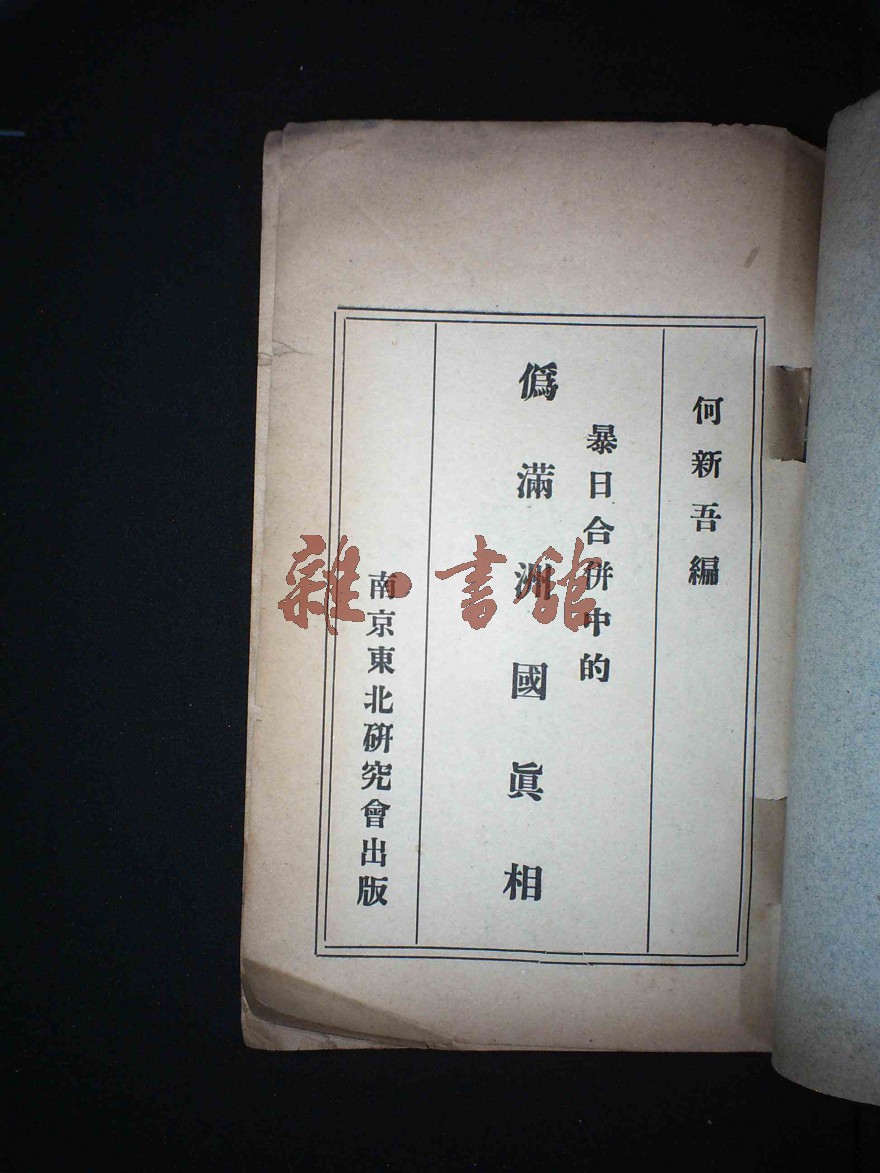 何新吾編
暴日合併中的
僞滿洲國眞相
南京東北研究會出版
雜·書館